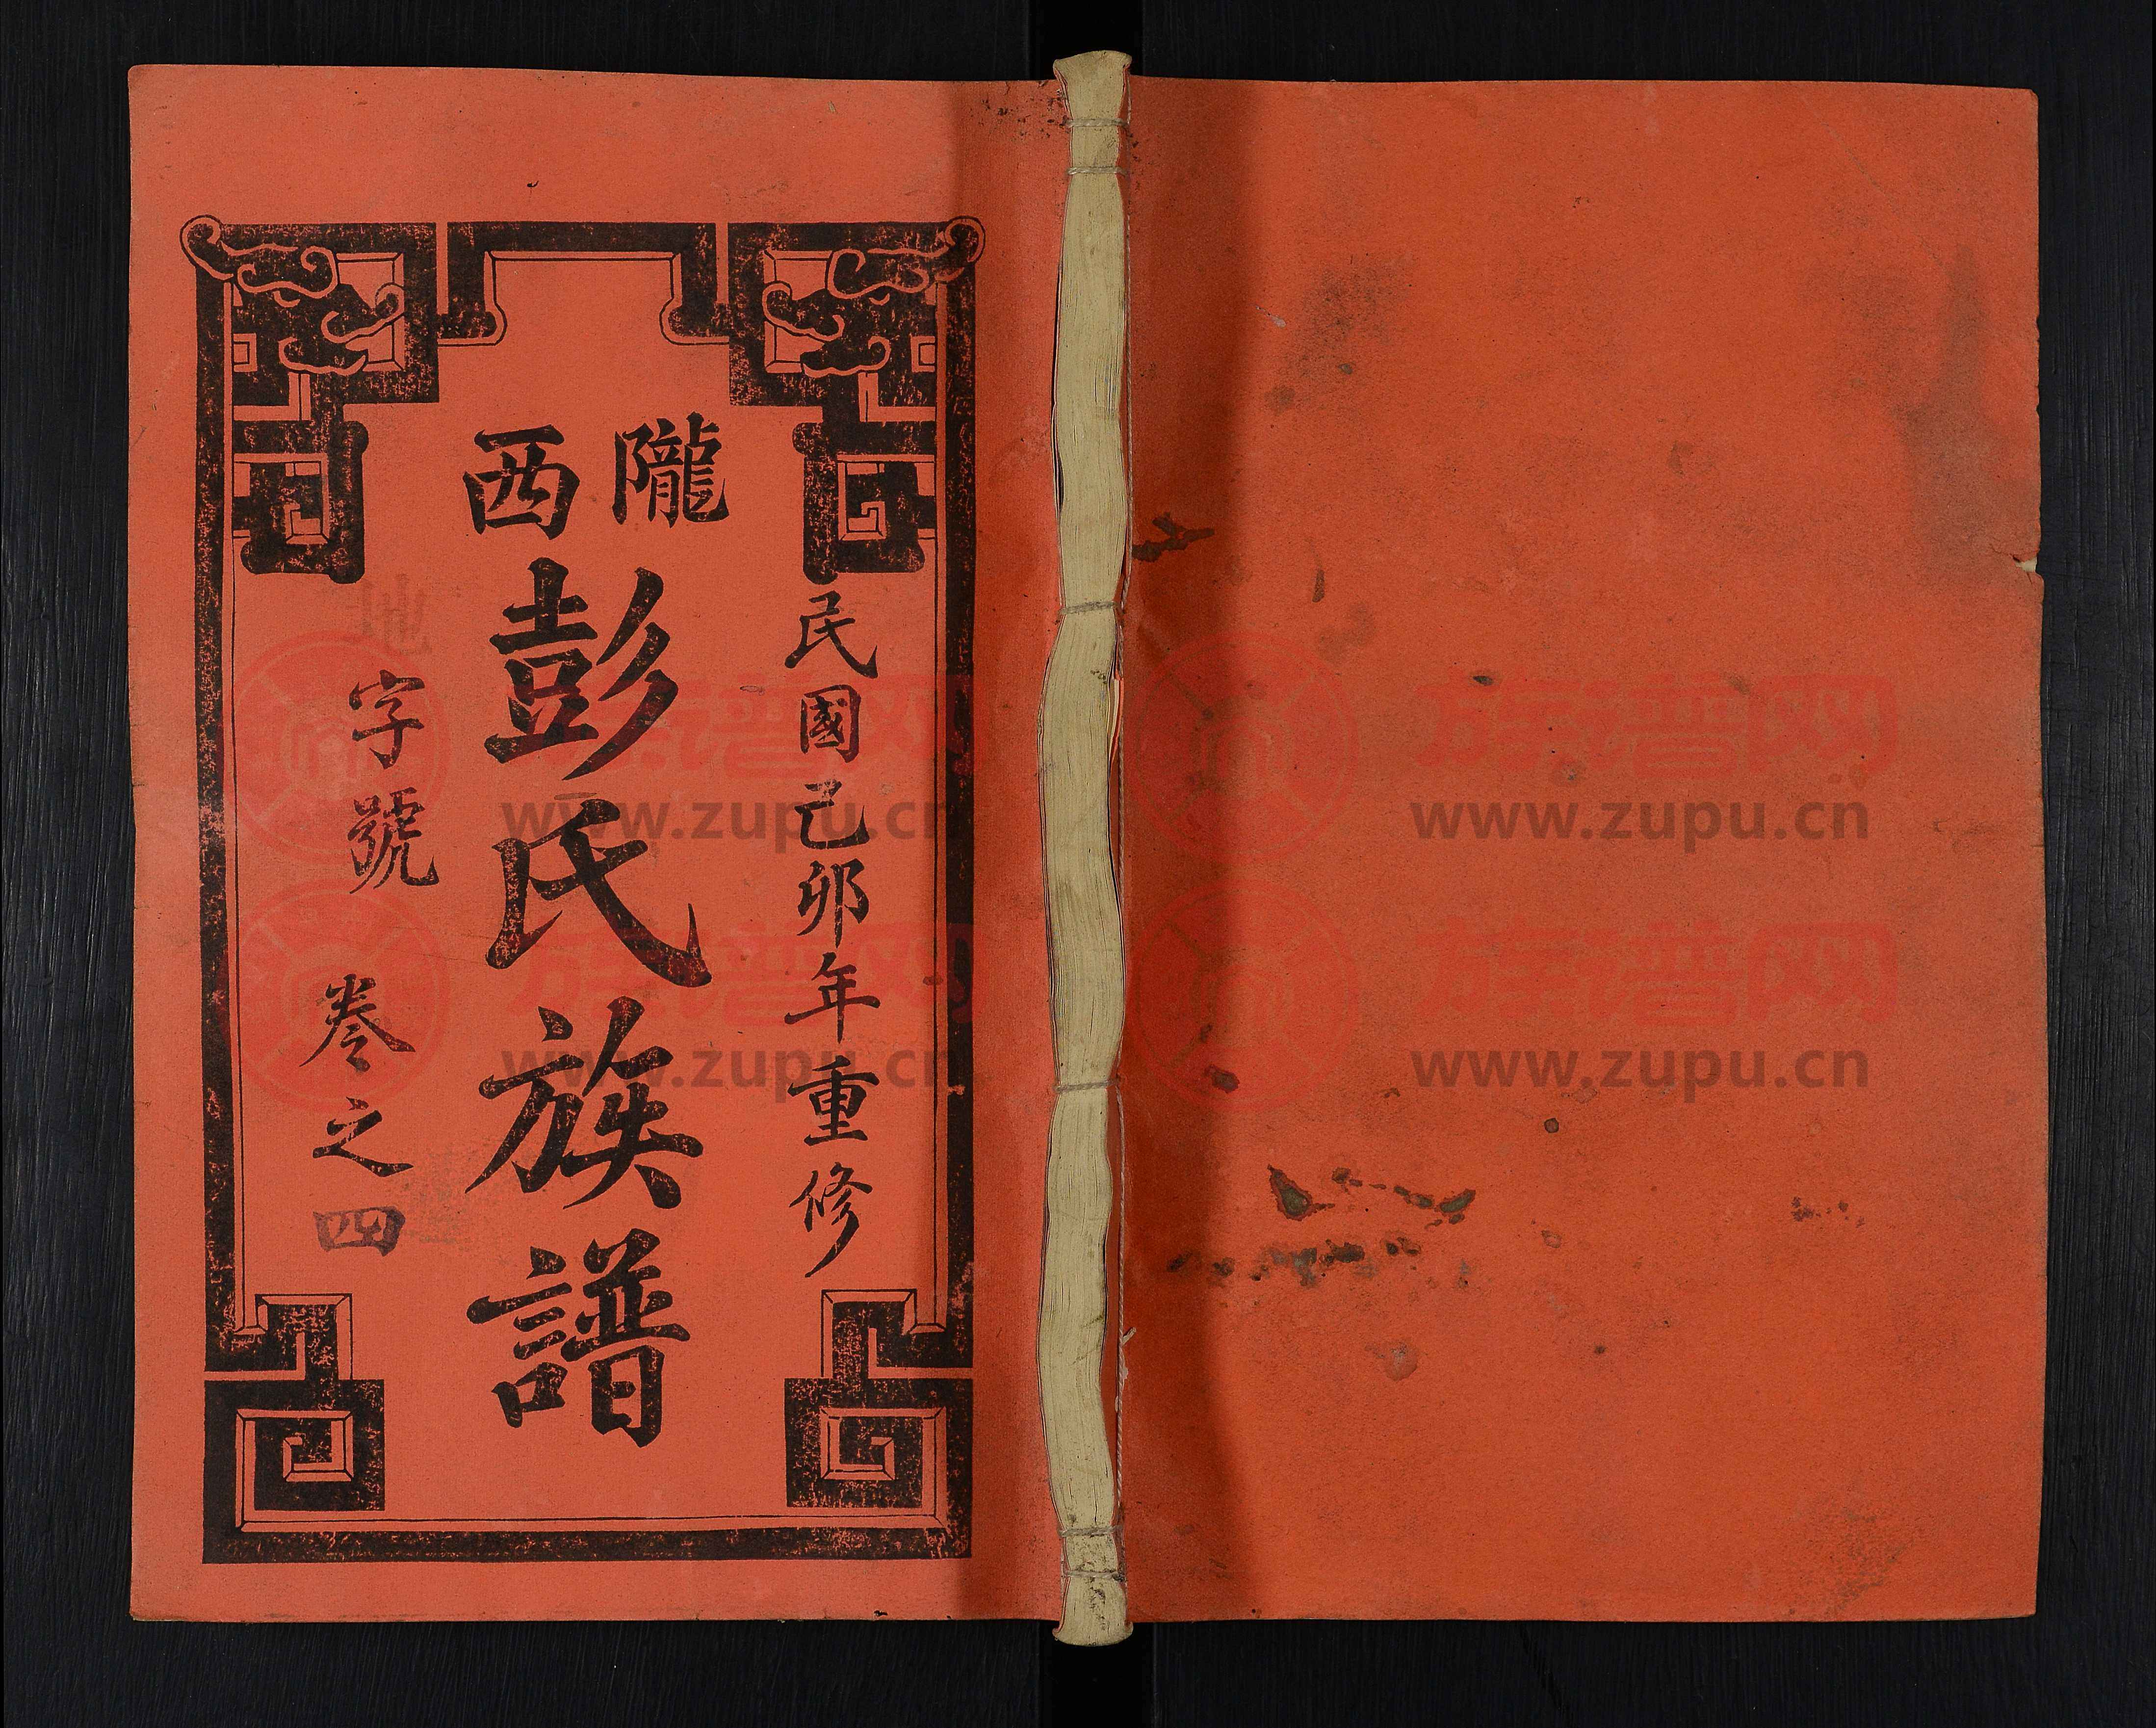 民國己卯年重修
隴西
彭氏族譜
地字號 卷之四
族谱网
www.zupu.cn
族谱网
www.zupu.cn
族谱网
www.zupu.cn
族谱网
www.zupu.cn